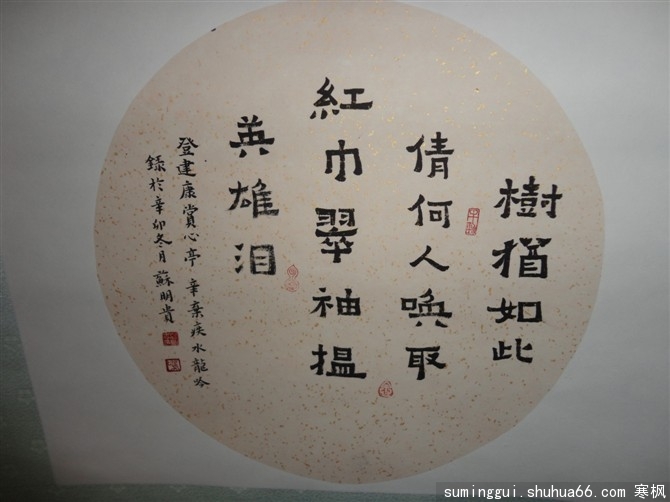 樹猶如此
倩何人喚取
紅巾翠袖揾
英雄泪
登建康賞心亭 辛棄疾水龍吟
錄於辛卯冬月 蘇明貴
suminggui.shuhua66.com 寒枫